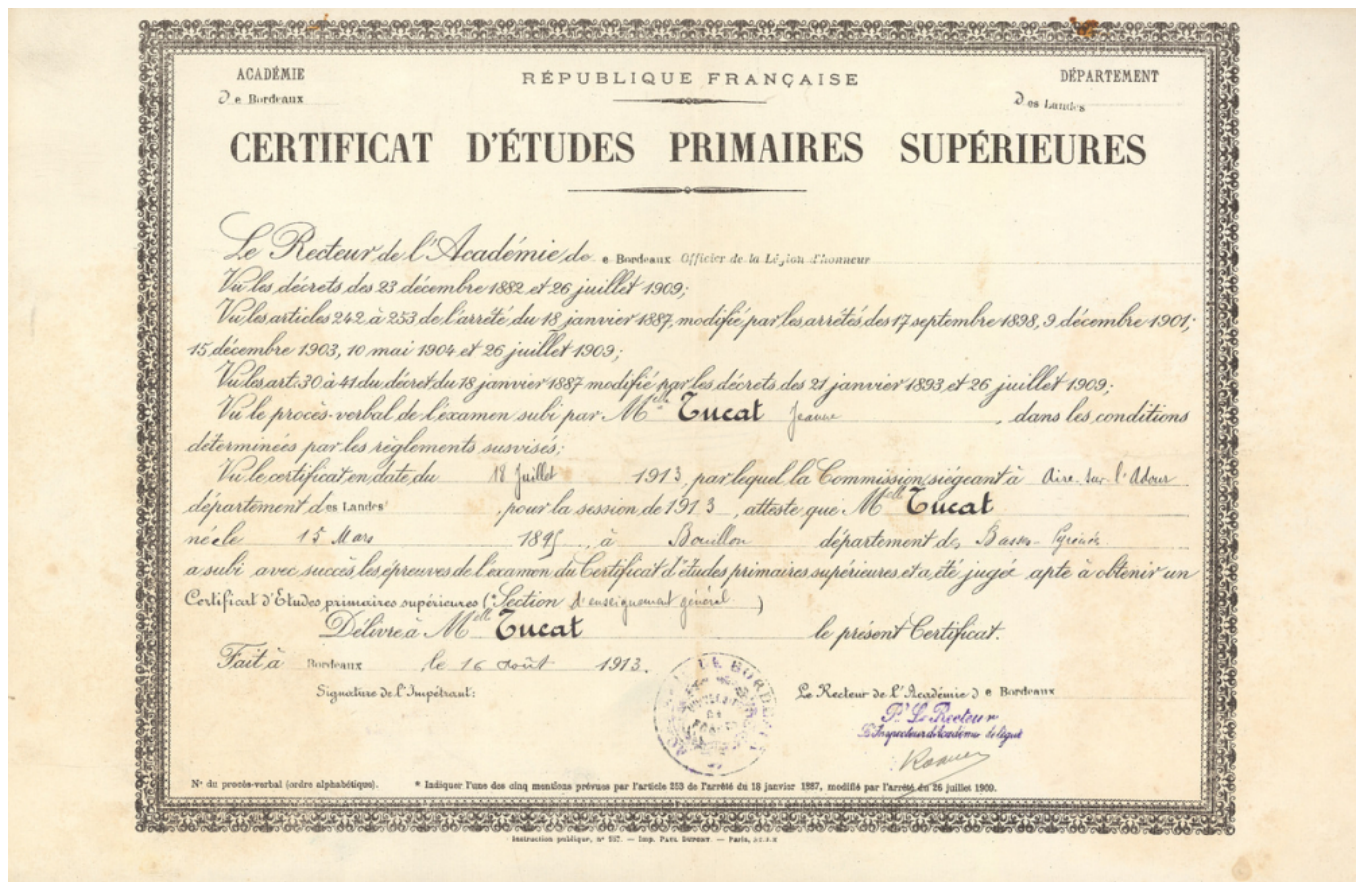 ACADÉMIE
De Bordeaux
RÉPUBLIQUE FRANÇAISE
DÉPARTEMENT
Des Landes
CERTIFICAT D'ÉTUDES PRIMAIRES SUPÉRIEURES
Le Recteur de l'Académie de e Bordeaux Officier de la Légion d'honneur
Vu les décrets des 23 décembre 1882 et 26 juillet 1909;
Vu les articles 242 à 253 de l'arrêté du 18 janvier 1887, modifié par les arrêtés des 17 septembre 1898, 9 décembre 1901;
15 décembre 1903, 10 mai 1904 et 26 juillet 1909;
Vu les art. 30 à 41 du décret du 18 janvier 1887 modifié par les décrets des 21 janvier 1893 et 26 juillet 1909;
Vu le procès-verbal de l'examen subi par Melle Tucat Jeanne, dans les conditions
déterminées par les règlements susvisés;
Vu le certificat en date du 18 Juillet 1913, par lequel la Commission siégeant à Aire sur l'Adour
département des Landes, pour la session de 1913, atteste que Melle Tucat
née le 15 Mars 1895, à Bouillon département des Basses-Pyrénées
a subi avec succès les épreuves de l'examen du Certificat d'études primaires supérieures et a été jugée apte à obtenir un
Certificat d'Études primaires supérieures (*Section d'enseignement général)
Délivre à Melle Tucat le présent Certificat.
Fait à Bordeaux, le 16 août 1913.
Signature de l'Impétrant:
Le Recteur de l'Académie de Bordeaux
Pr Le Recteur
L'Inspecteur d'Académie délégué
N° du procès-verbal (ordre alphabétique).
* Indiquer l'une des cinq mentions prévues par l'article 253 de l'arrêté du 18 janvier 1887, modifié par l'arrêté du 26 juillet 1909.
Instruction publique, n° 257. — Imp. PAUL DUPONT. — Paris,